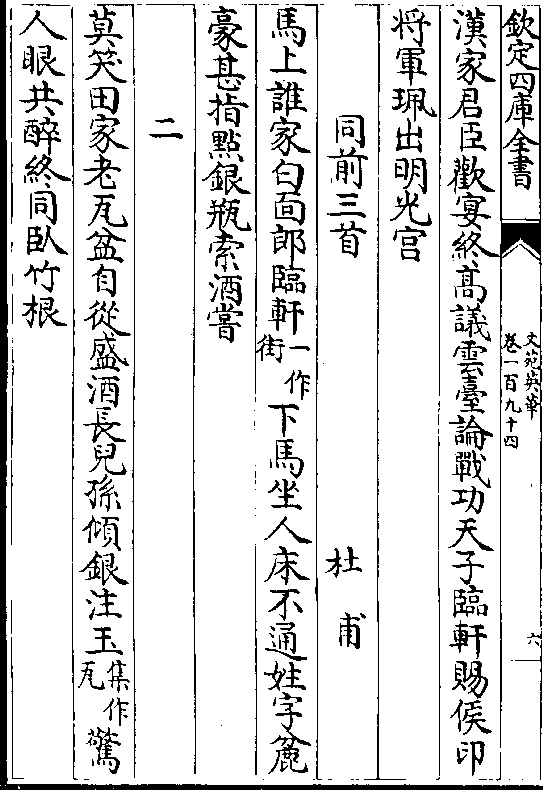 欽定四庫全書
文苑英華
卷一百九十四
六
漢家君臣歡宴終髙議雲臺論戰功天子臨軒賜侯印
将軍珮出明光宫
同前三首
杜甫
馬上誰家白面郎臨軒一作街下馬坐人床不通姓字麄
豪甚指㸃銀瓶索酒嘗
二
莫笑田家老瓦盆自從盛酒長兒孫傾銀注玉集作瓦驚
人眼共醉終同臥竹根